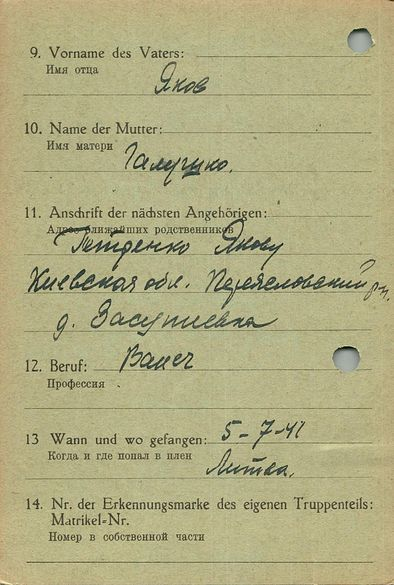 9. Vorname des Vaters:
Имя отца
Яков
10. Name der Mutter:
Имя матери
Галушко.
11. Anschrift der nächsten Angehörigen:
Адрес ближайших родственников
Петренко Якову
Киевская обл. Переяславский р-н.
д.
12. Beruf:
Профессия
13 Wann und wo gefangen: 5-7-41
Когда и где попал в плен
Литва.
14. Nr. der Erkennungsmarke des eigenen Truppenteils:
Matrikel-Nr.
Номер в собственной части